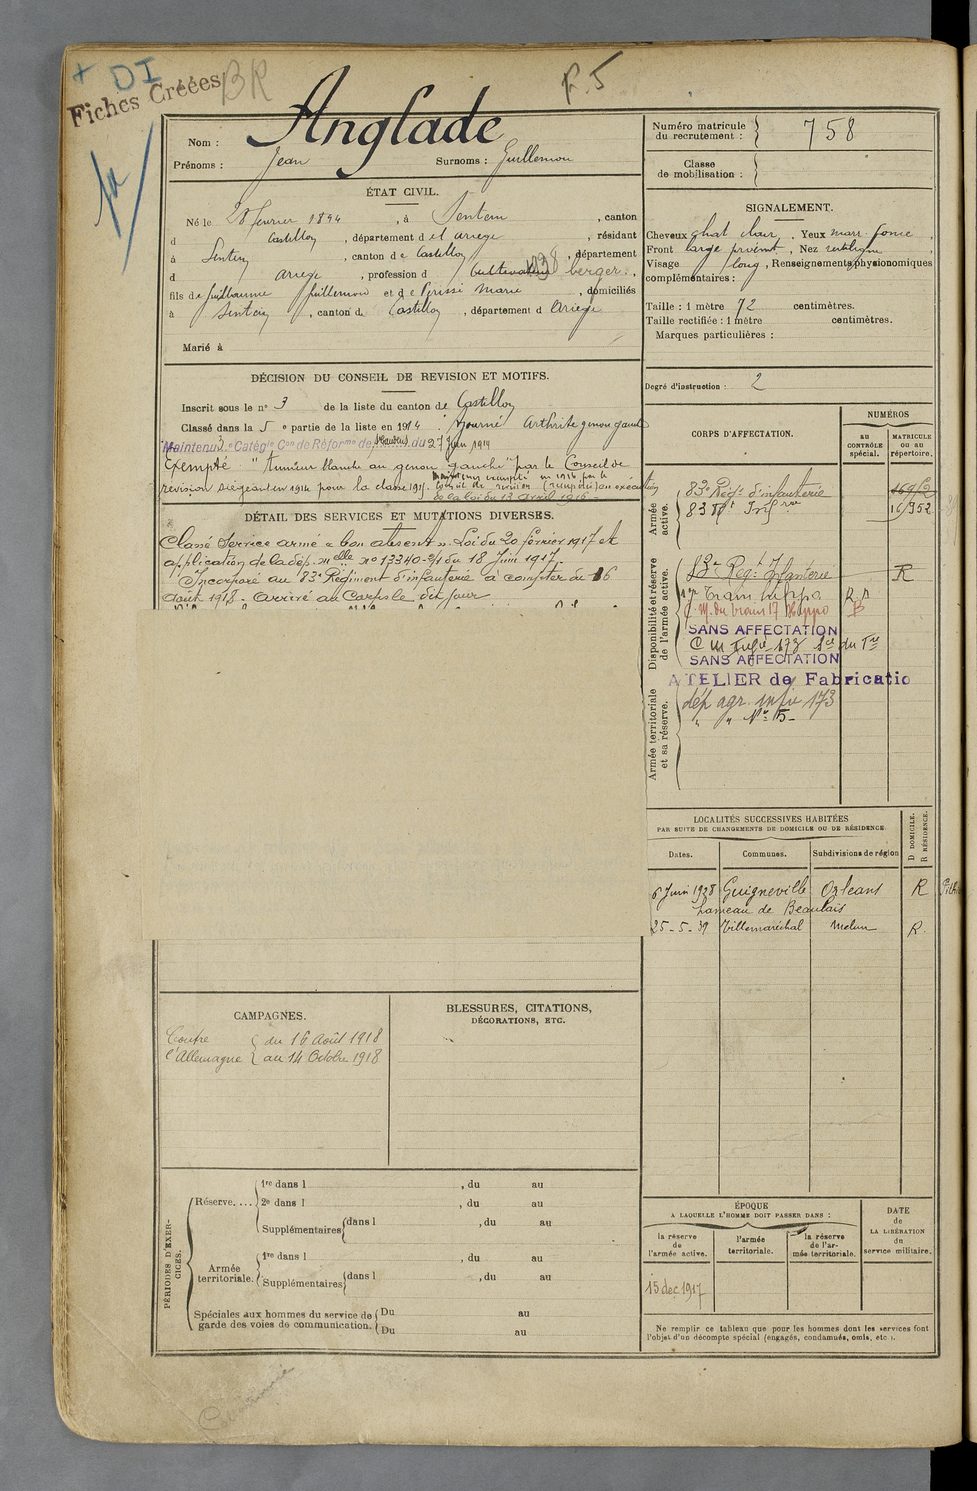 + DI
BR
F. 5
Fiches Créées
Nom : Anglade
Prénoms : Jean Surnoms : Guillemou
ÉTAT CIVIL.
Né le 28 février 1894, à Sentein, canton
d Castillon, département d el ariege, résidant
à Sentein, canton de Castillon, département
d ariege, profession d Cultivateur berger.,
fils de Guillaume Guillemou et de Périssé Marie, domiciliés
à Sentein, canton de Castillon, département d Ariège
Marié à
DÉCISION DU CONSEIL DE REVISION ET MOTIFS.
Inscrit sous le n° 3 de la liste du canton de Castillon
Classé dans la 5 e partie de la liste en 1914. Ajourné Arthrite genou gauche
Maintenu 3e Catégie Con de Réforme de du 27 Juin 1917
Exempté "tumeur blanche au genou gauche" par le Conseil de
revision siégeant en 1914 pour la classe 1915. Maintenu exempté en 1916 par le
Conseil de revision (exempté) en exécution
de la loi du 13 avril 1916 -
DÉTAIL DES SERVICES ET MUTATIONS DIVERSES.
Classé Service armé « bon absent ». Loi du 20 février 1917 et
application de la dép. melle n° 13340-2/1 du 18 Juin 1917.
Incorporé au 83e Régiment d'infanterie à compter du 16
Août 1918. Arrivé au Corps le dit jour
CAMPAGNES.
Contre { du 16 Août 1918
l'Allemagne { au 14 Octobre 1918
BLESSURES, CITATIONS,
DÉCORATIONS, ETC.
PÉRIODES D'EXERCICES.
Réserve....
1re dans l , du au
2e dans l , du au
Supplémentaires dans l , du au
Armée territoriale.
1re dans l , du au
Supplémentaires dans l , du au
Spéciales aux hommes du service de garde des voies de communication.
Du au
Du au
Numéro matricule du recrutement : 758
Classe de mobilisation :
SIGNALEMENT.
Cheveux chat clair, Yeux marr. foncé,
Front large proémt, Nez rectiligne
Visage long, Renseignements physionomiques
complémentaires :
Taille : 1 mètre 72 centimètres.
Taille rectifiée : 1 mètre centimètres.
Marques particulières :
Degré d'instruction : 2
CORPS D'AFFECTATION.
NUMÉROS
AU CONTRÔLE spécial.
MATRICULE OU AU répertoire.
Armée active.
83e Régt d'infanterie
83 Rgt Infrie 16952
Disponibilité et réserve de l'armée active.
83e Regt Infanterie R
Train hippo.
C. M. du train 17 Hippo
SANS AFFECTATION
C M Infie 173 Son du Tre
SANS AFFECTATION
ATELIER de Fabricatio
Armée territoriale et sa réserve.
dép agr. infie 173
" " N° 15-
LOCALITÉS SUCCESSIVES HABITÉES
PAR SUITE DE CHANGEMENTS DE DOMICILE OU DE RÉSIDENCE
Dates. Communes. Subdivisions de région
D DOMICILE. R RÉSIDENCE.
6 Juin 1928 Guigneville Orléans R
hameau de Beaulais
25-5-31 Villemaréchal Melun R.
ÉPOQUE
A LAQUELLE L'HOMME DOIT PASSER DANS :
la réserve de l'armée active.
l'armée territoriale.
la réserve de l'armée territoriale.
DATE
de
LA LIBÉRATION
du
service militaire.
15 dec. 1917
Ne remplir ce tableau que pour les hommes dont les services font
l'objet d'un décompte spécial (engagés, condamnés, omis, etc.).